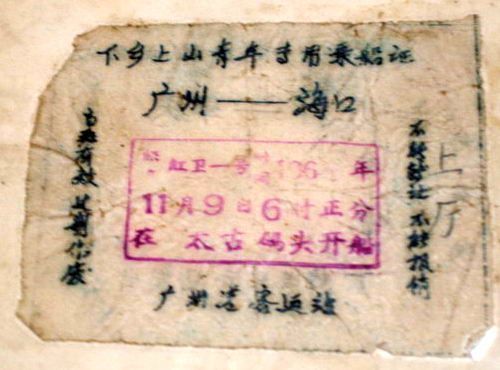 下乡上山青年专用乘船证
广州——海口
当班有效 过期作废
红卫一号 196 年
11月9日6时正分
在太古码头开船
不转让 不报销
上厅
广州港客运站